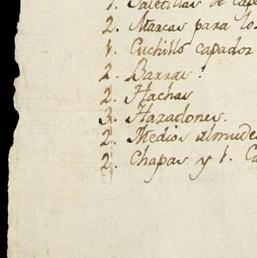 1. Paletillas de
2. Marcas para
1. Cuchillo capador
2. Barras.
2. Hachas
3. Hazadones.
2. Medios almudes
2. Chapas y 1.